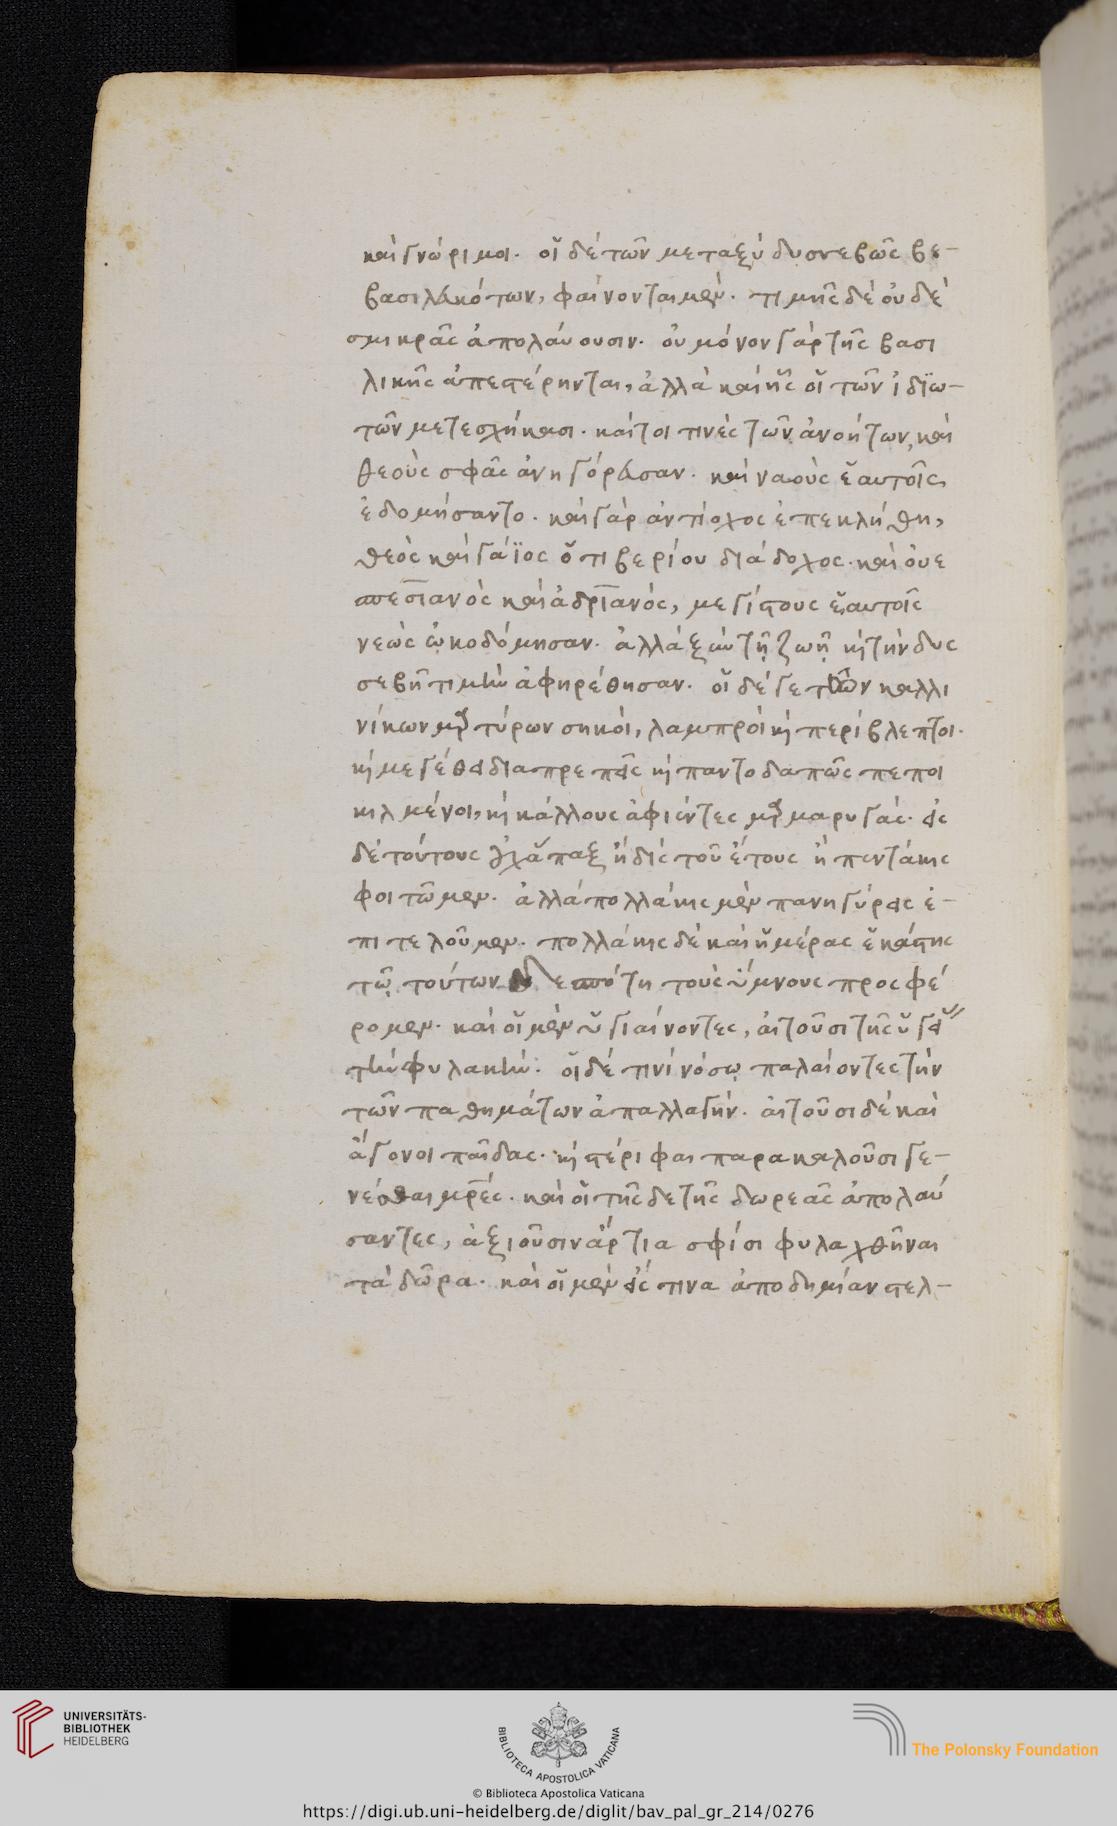 καὶ γνώριμοι. οἱ δὲ τῶν μεταξὺ δυσσεβῶς βε-
βασιλευκότων, φαίνονται μὲν. τιμῆς δὲ οὐδὲ
σμικρᾶς ἀπολαύουσιν. οὐ μόνον γὰρ τῆς βασι
λικῆς ἀπεστέρηνται, ἀλλὰ καὶ ἧς οἱ τῶν ἰδϊω-
τῶν μετεσχήκασι. καίτοι τινὲς τῶν ἀνοήτων, καὶ
θεοὺς σφᾶς ἀνηγόρευσαν. καὶ ναοὺς ἑαυτοῖς,
ἐδομήσαντο. καὶ γὰρ ἀντίοχος ἐπεκλήθη,
θεὸς καὶ γάϊος ὁ τιβερίου διάδοχος. καὶ οὐε
σπεσιανὸς καὶ ἀδριανός, μεγίστους ἑαυτοῖς
νεὼς ᾠκοδόμησαν. ἀλλὰ ξὺν τῇ ζωῇ κ τὴν δυσ
σεβῆ τιμὴν ἀφηρέθησαν. οἱ δέ γε τῶν καλλι
νίκων μρτύρων σηκοί, λαμπροὶ κ περίβλεπτοι.
κ μεγέθει διαπρεπεῖς κ παντοδαπῶς πεποι
κιλμένοι, κ κάλλους ἀφιέντες μαρμαρυγάς. εἰς
δὲ τούτους οὐχ ἅπαξ ἢ δὶς τοῦ ἔτους ἢ πεντάκις
φοιτῶμεν. ἀλλὰ πολλάκις μὲν πανηγύρεις ἐ-
πιτελοῦμεν. πολλάκις δὲ καὶ ἡμέρας ἑκάστης
τῷ τούτων δεσπότῃ τοὺς ὕμνους προσφέ
ρομεν. καὶ οἱ μὲν ὑγιαίνοντες, αἰτοῦσι τῆς ὑγείας
τὴν φυλακήν. οἱ δέ τινί νόσῳ παλαίοντες τὴν
τῶν παθημάτων ἀπαλλαγήν. αἰτοῦσι δὲ καὶ
ἄγονοι παῖδας. κ στέριφαι παρακαλοῦσι γε-
νέσθαι μρες. καὶ οἱ τῆσδε τῆς δωρεᾶς ἀπολαύ
σαντες, ἀξιοῦσιν ἄρτια σφίσι φυλαχθῆναι
τὰ δῶρα. καὶ οἱ μὲν εἴς τινα ἀποδημίαν στελ-
UNIVERSITÄTS-
BIBLIOTHEK
HEIDELBERG
BIBLIOTECA APOSTOLICA VATICANA
The Polonsky Foundation
© Biblioteca Apostolica Vaticana
https://digi.ub.uni-heidelberg.de/diglit/bav_pal_gr_214/0276